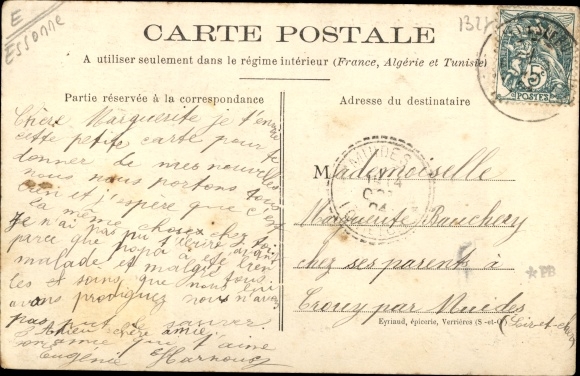 E
Essonne
132
CARTE POSTALE
A utiliser seulement dans le régime intérieur (France, Algérie et Tunisie)
5c
POSTES
Partie réservée à la correspondance
Adresse du destinataire
Chère Marguerite je t'envoie
cette petite carte pour te
donner de mes nouvelles
nous nous portons tous
bien et j'espère que c'est
la même chose chez toi
Je n'ai pas pu t'écrire avant
parce que papa a été bien
malade et malgré tous
les soins que nous lui
avons prodigués nous n'avons
pas pu le sauver
Adieu chère amie
ton amie qui t'aime
Eugénie Harnouy
MUIDES
Mademoiselle
Marguerite Bauchery
chez ses parents à
Crouy par Muides
(Loir-et-Cher)
*PB
Eyriaud, épicerie, Verrières (S.-et-O.)